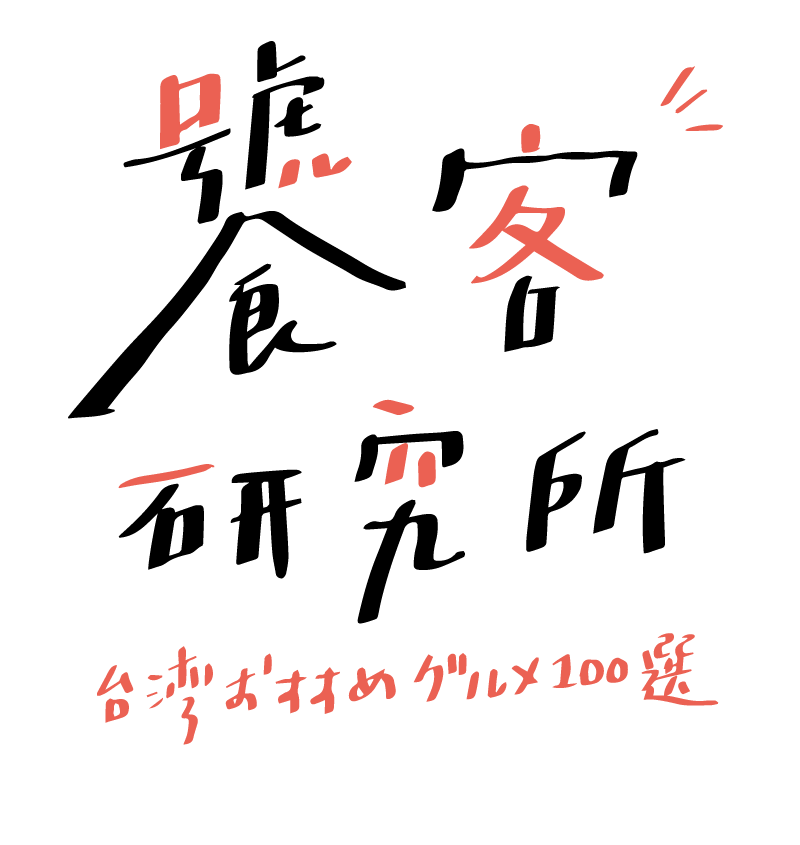 饕客
研究所
台湾おすすめグルメ100選